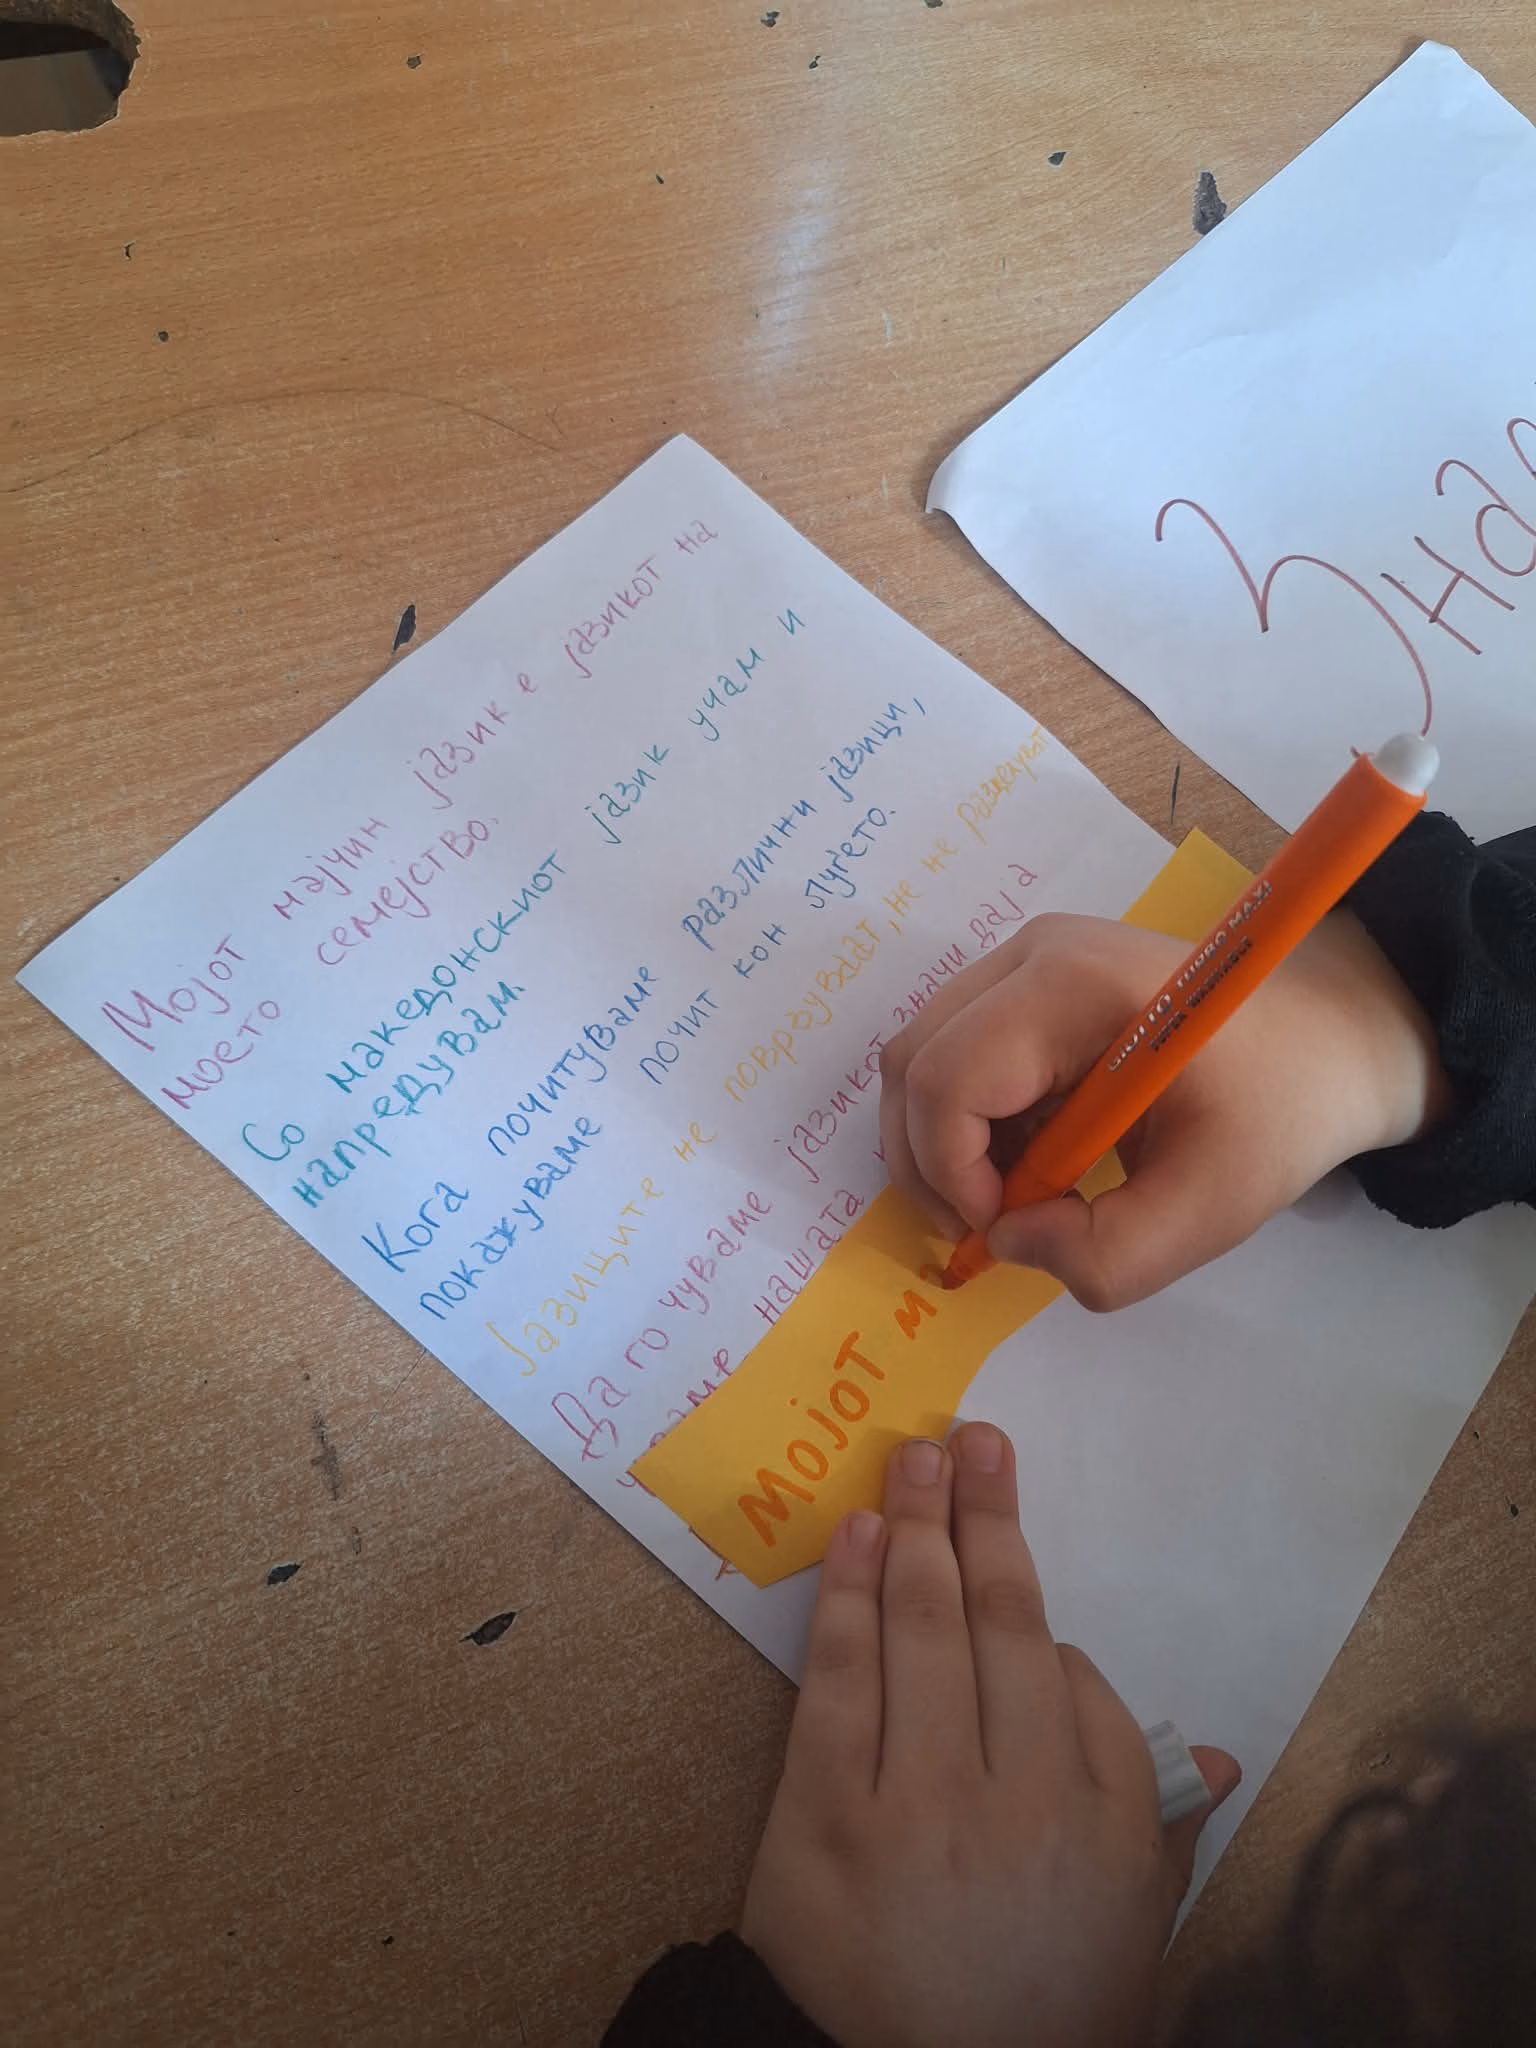 Мојот мајчин јазик е јазикот на
моето семејство.
Со македонскиот јазик учам и
напредувам.
Кога почитуваме различни јазици,
покажуваме почит кон луѓето.
Јазиците не поврзуваат, не не разделуваат
Да го чуваме јазикот значи да ја
чуваме нашата
Мојот ма
Зна
GIOTTO TURBO MAXI
SUPER WASHABLE